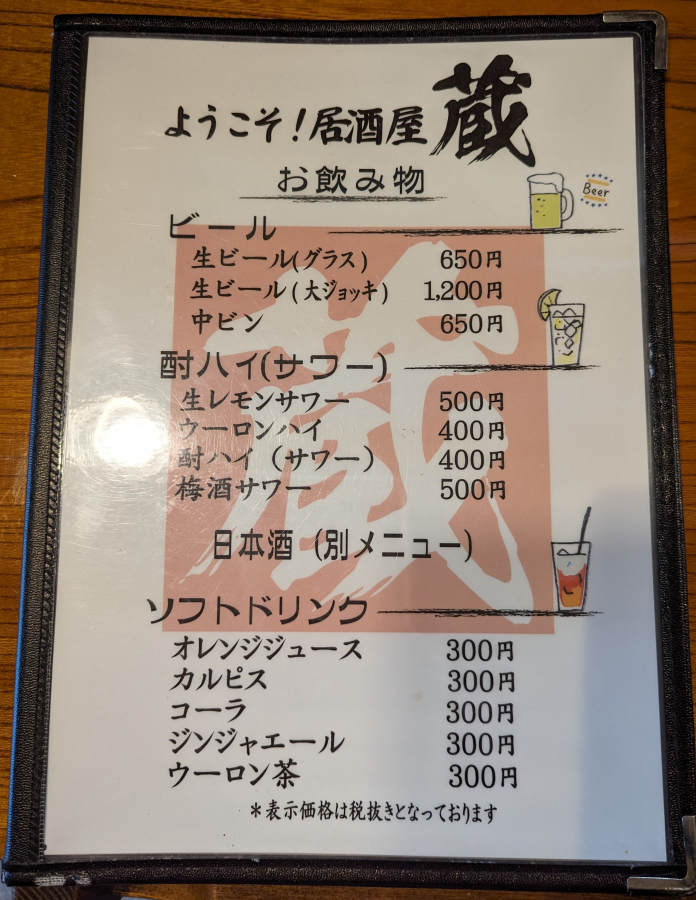 ようこそ！居酒屋 蔵
お飲み物
Beer
ビール
生ビール(グラス) 650円
生ビール(大ジョッキ) 1,200円
中ビン 650円
酎ハイ(サワー)
生レモンサワー 500円
ウーロンハイ 400円
酎ハイ（サワー） 400円
梅酒サワー 500円
日本酒（別メニュー）
ソフトドリンク
オレンジジュース 300円
カルピス 300円
コーラ 300円
ジンジャエール 300円
ウーロン茶 300円
＊表示価格は税抜きとなっております
蔵